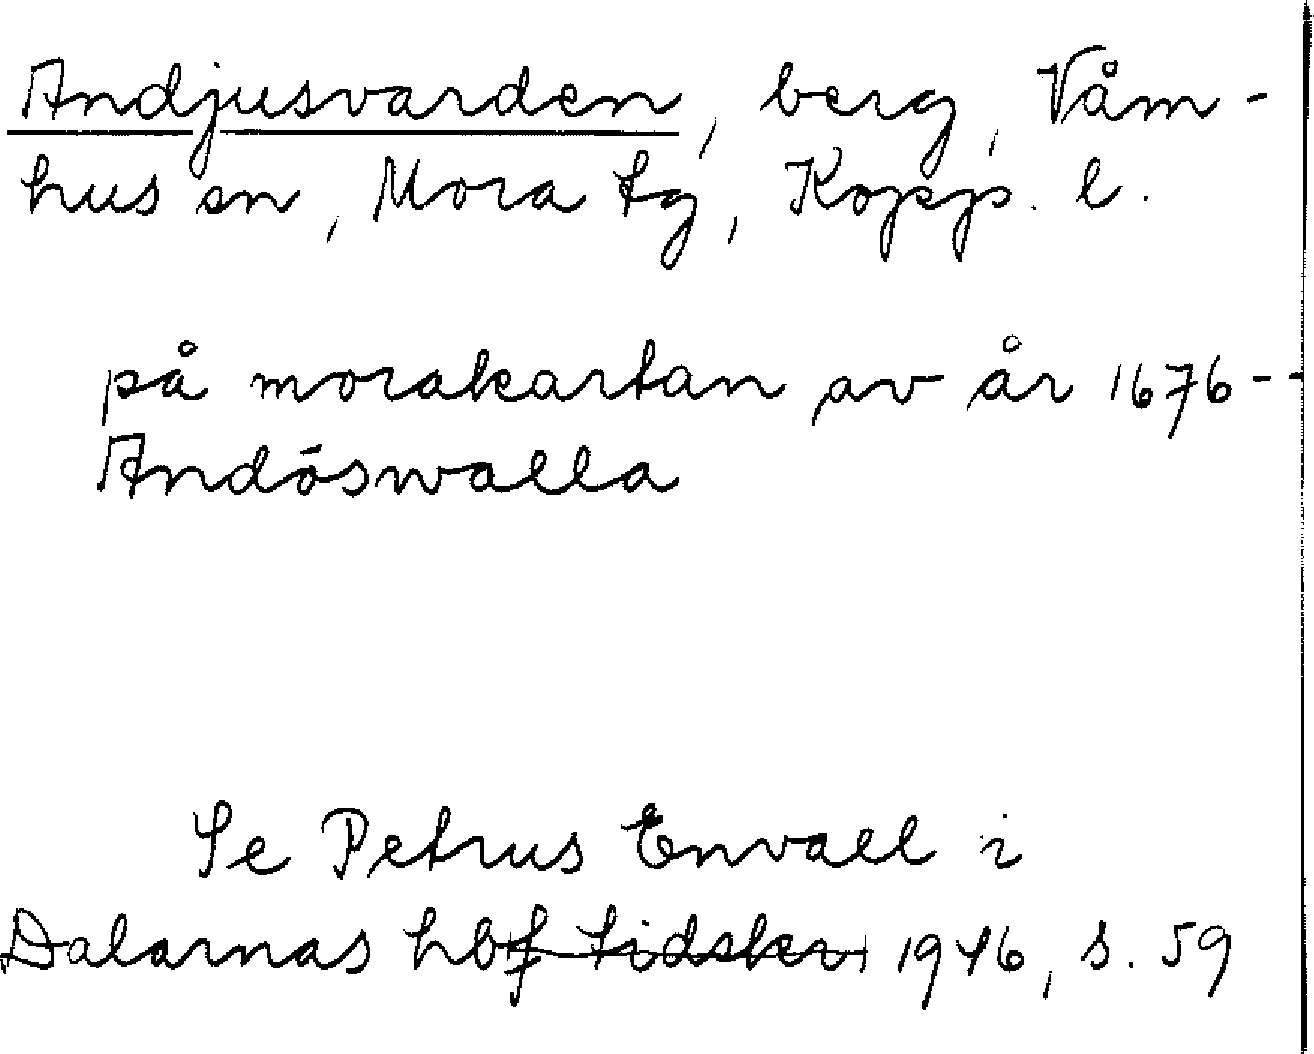 Andjusvarden, berg, Våm-
hus sn, Mora tg, Kopp. l.
på morakartan av år 1676--
Andóswalla
Se Petrus Envall i
Dalarnas hbf tidskr 1946, s. 59